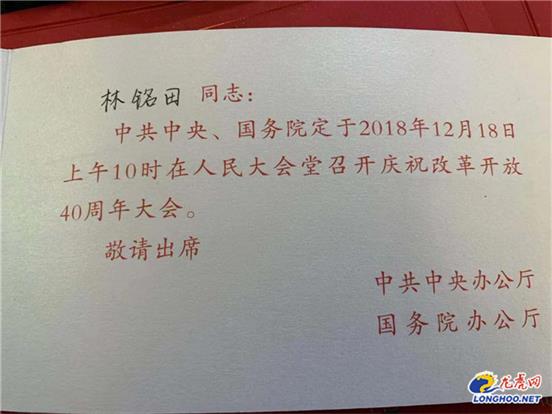 林铭田 同志：
中共中央、国务院定于2018年12月18日
上午10时在人民大会堂召开庆祝改革开放
40周年大会。
敬请出席
中共中央办公厅
国务院办公厅
龙虎网
LONGHOO.NET